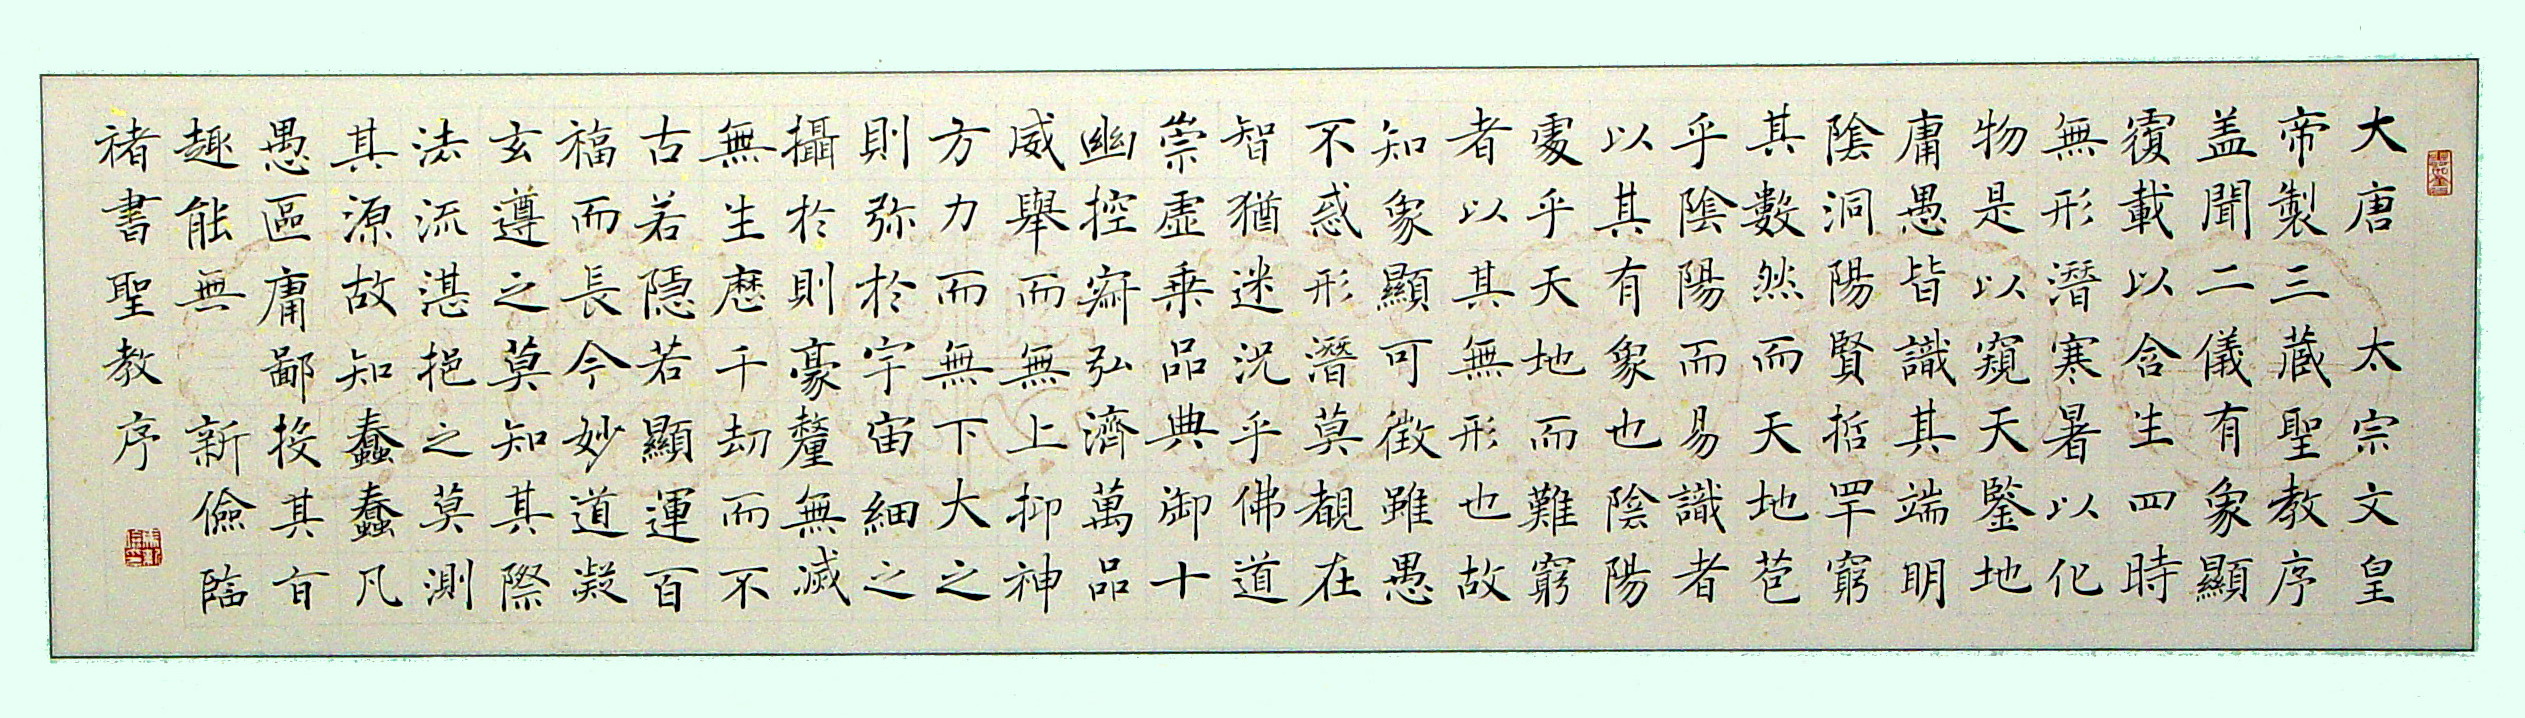 大唐太宗文皇
帝製三藏聖教序
盖聞二儀有象顯
覆載以含生四時
無形潛寒暑以化
物是以窺天鑒地
庸愚皆識其端明
陰洞陽賢哲罕窮
其數然而天地苞
乎陰陽而易識者
以其有象也陰陽
處乎天地而難窮
者以其無形也故
知象顯可徵雖愚
不惑形潛莫覩在
智猶迷況乎佛道
崇虛乗品典御十
幽控寂弘濟萬品
威舉而無上抑神
方力而無下大之
則弥於宇宙細之
攝於則豪釐無滅
無生歷千劫而不
古若隱若顯運百
福而長今妙道凝
玄遵之莫知其際
法流湛挹之莫測
其源故知蠢蠢凡
愚區庸鄙投其旨
趣能無新儉臨
褚書聖教序